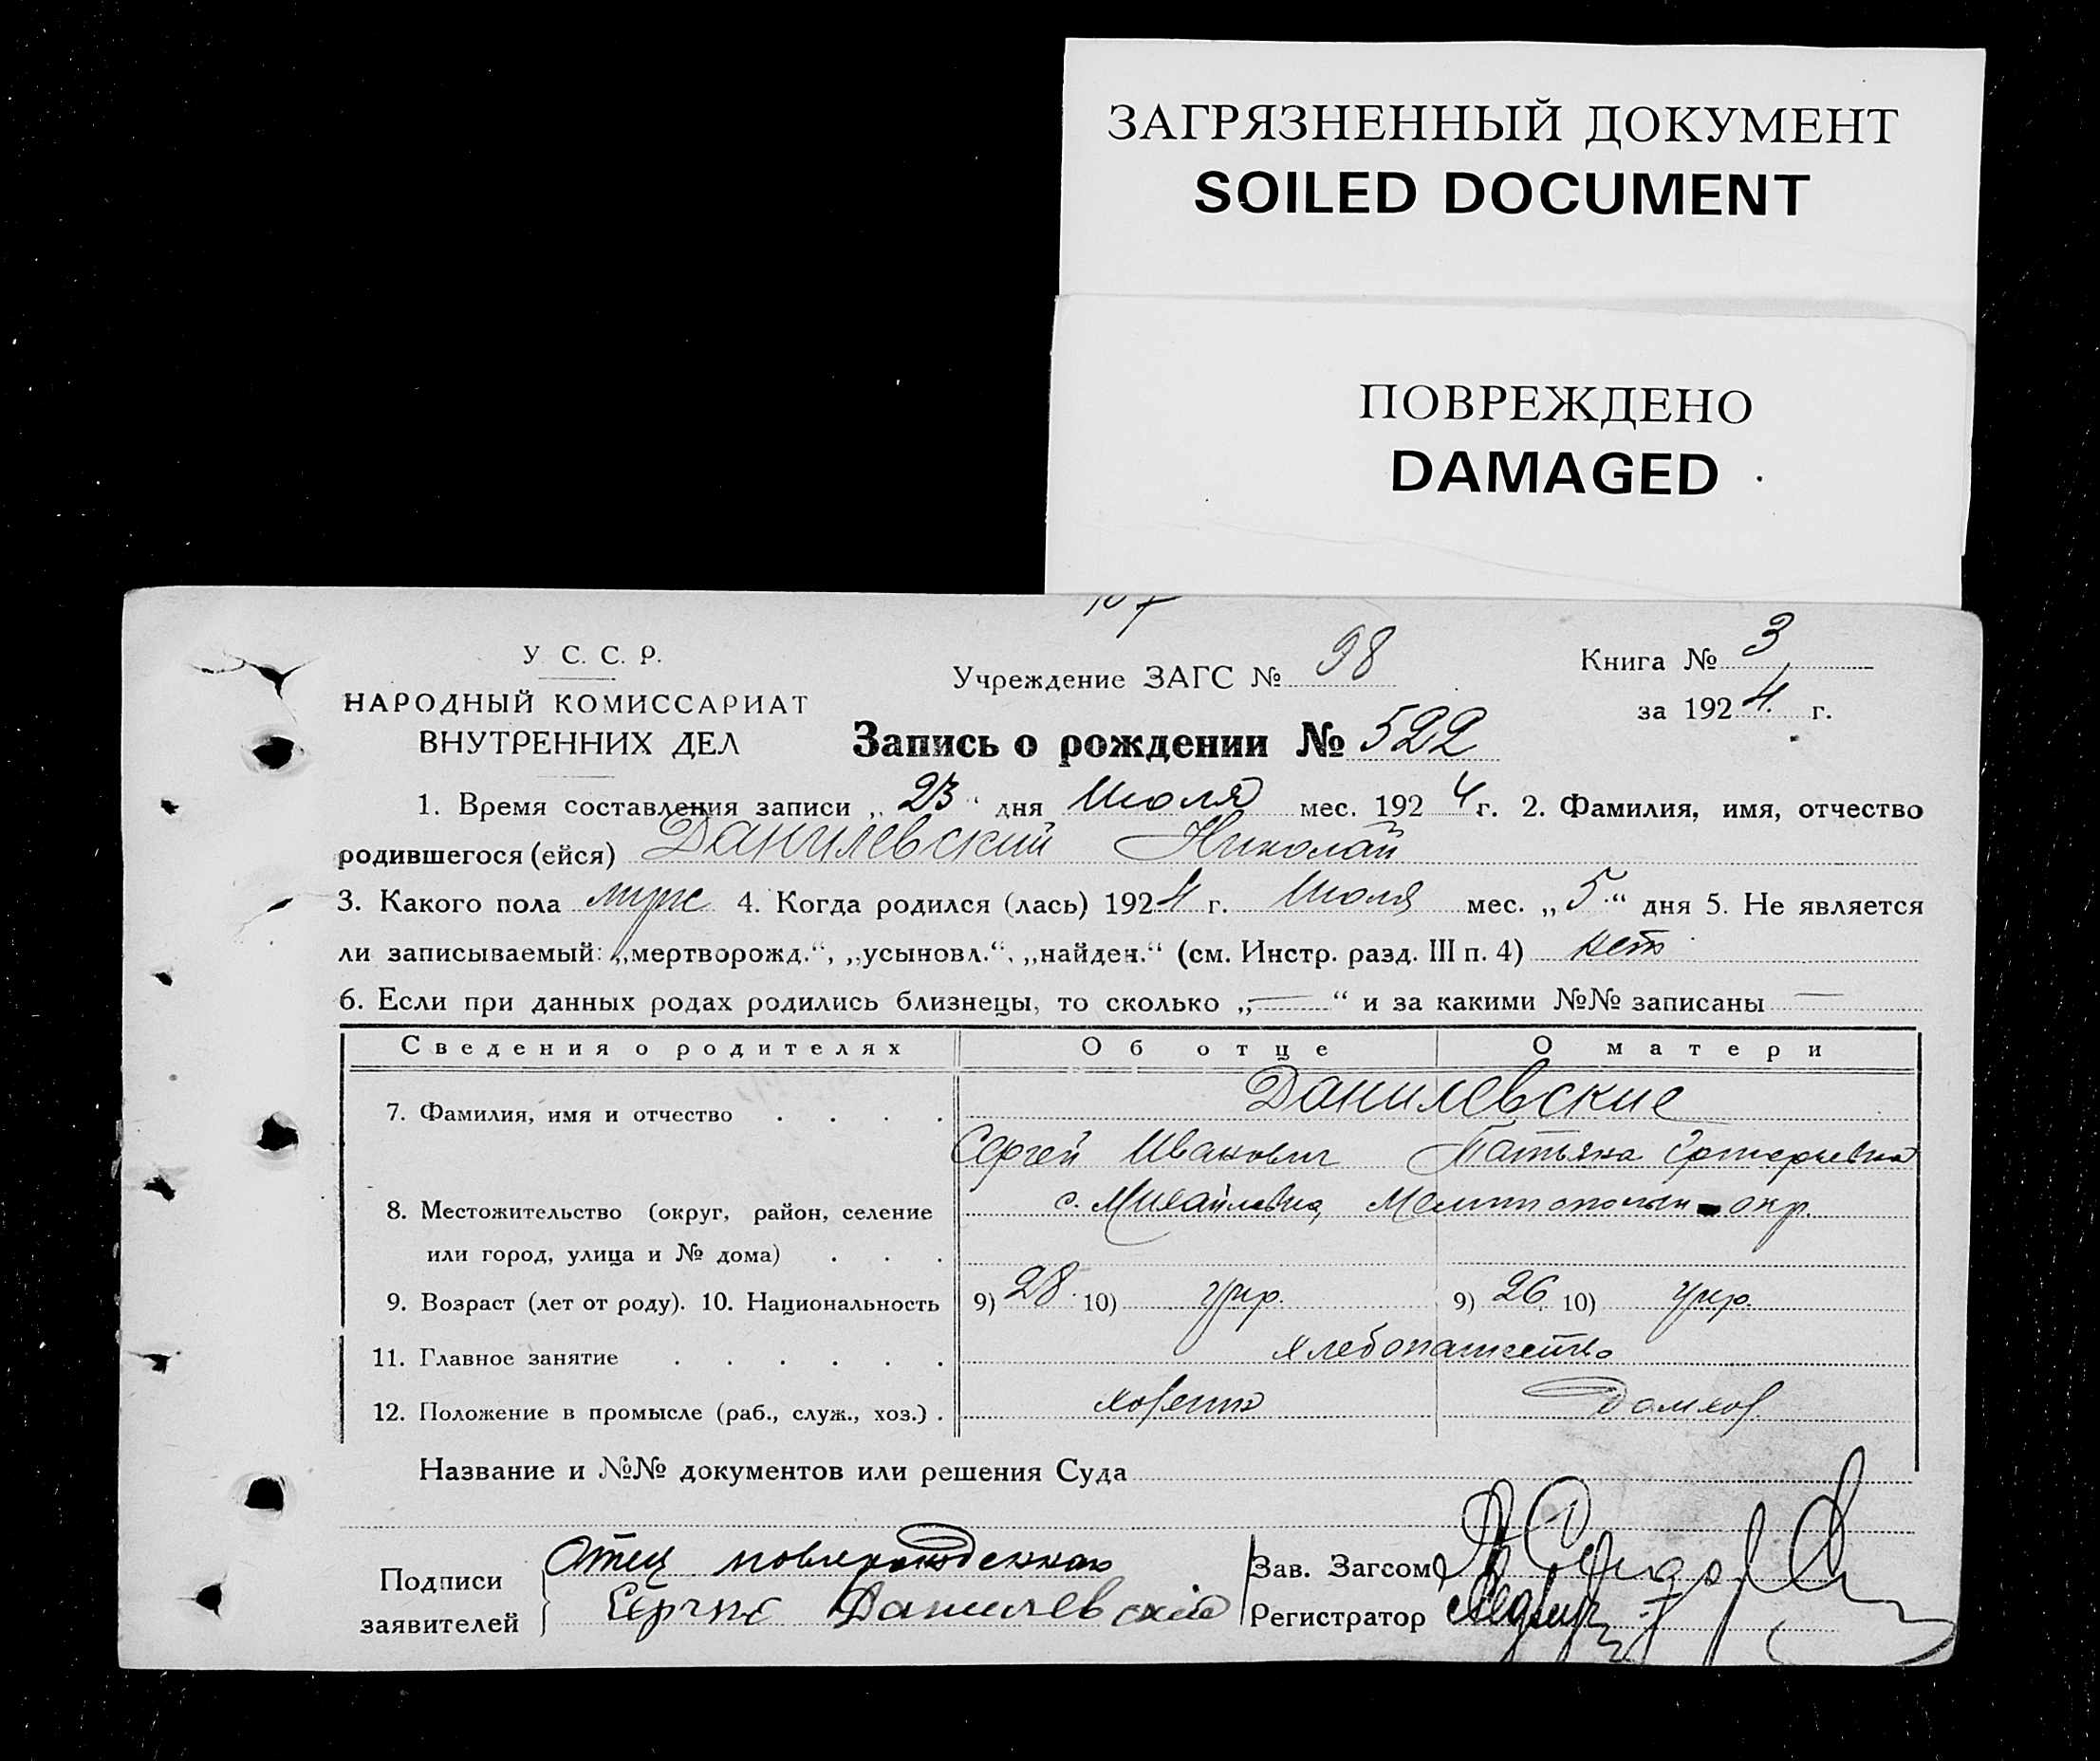 ЗАГРЯЗНЕННЫЙ ДОКУМЕНТ
SOILED DOCUMENT
ПОВРЕЖДЕНО
DAMAGED
У. С. С. Р.
НАРОДНЫЙ КОМИССАРИАТ
ВНУТРЕННИХ ДЕЛ
Учреждение ЗАГС № 98
Книга № 3
за 1924 г.
Запись о рождении № 522
1. Время составления записи „23“ дня Июля мес. 1924 г. 2. Фамилия, имя, отчество
родившегося (ейся) Данилевский Николай
3. Какого пола муж 4. Когда родился (лась) 1924 г. Июля мес. „5“ дня 5. Не является
ли записываемый: „мертворожд.“, „усыновл.“, „найден.“ (см. Инстр. разд. III п. 4) нет
6. Если при данных родах родились близнецы, то сколько „—“ и за какими №№ записаны —
Сведения о родителях Об отце О матери
7. Фамилия, имя и отчество . . . . Данилевские
Сергей Иванович Татьяна
8. Местожительство (округ, район, селение с. Михайловка, Мелитопольск окр.
или город, улица и № дома) . . .
9. Возраст (лет от роду). 10. Национальность 9) 28 10) укр. 9) 26 10) укр.
11. Главное занятие . . . . . . хлебопашество
12. Положение в промысле (раб., служ., хоз.) . хозяин домхоз.
Название и №№ документов или решения Суда
Подписи
заявителей
Отец новорожденного
Данилевский
Зав. Загсом
Регистратор